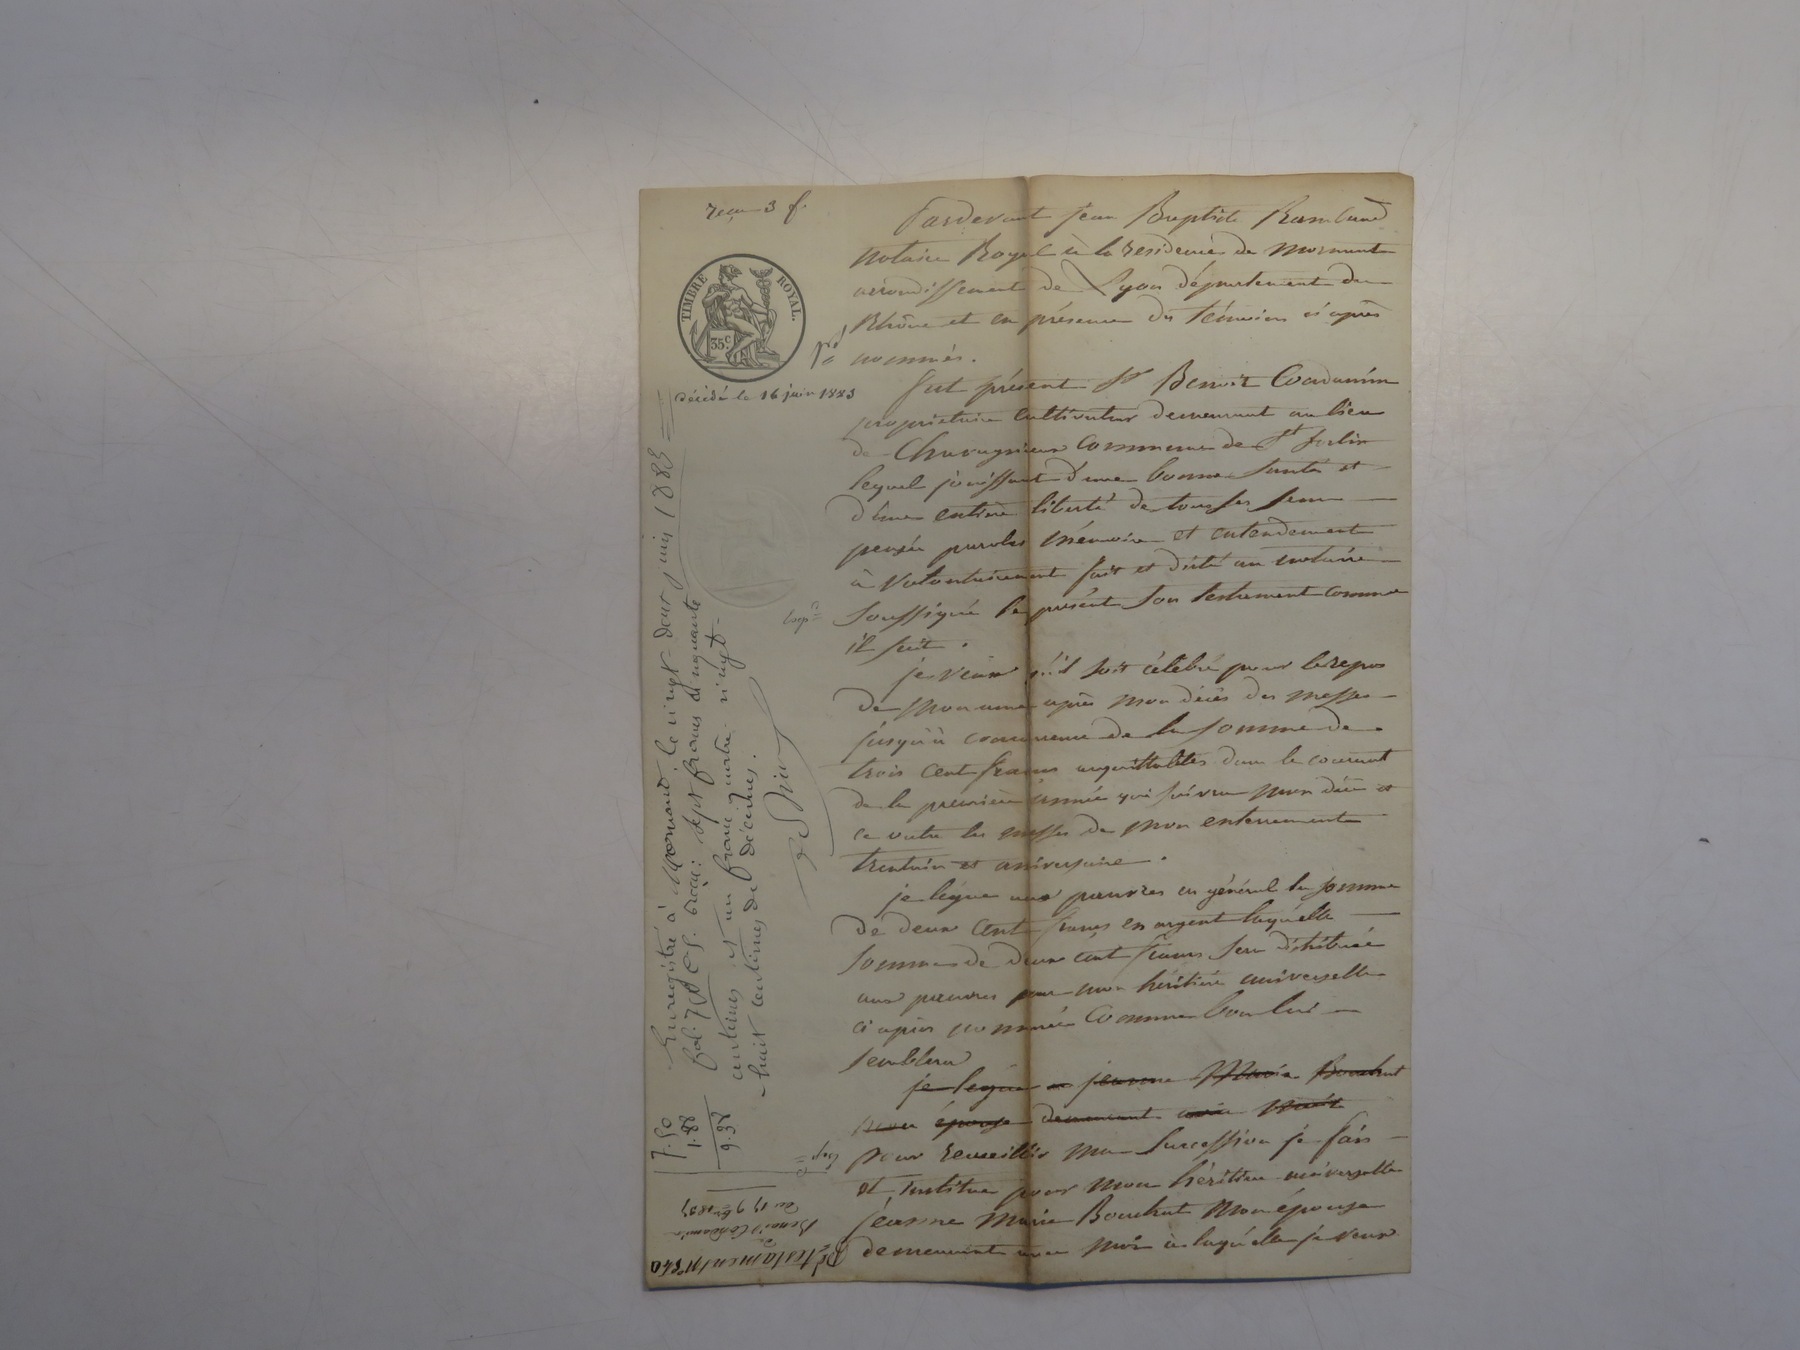 reçu 3 f.
TIMBRE ROYAL.
35 c
Décédé le 16 juin 1883
Pardevant Jean Baptiste Rambaud
notaire Royal à la residence de Mornant
arrondissement de Lyon département du
Rhône et en présence des témoins ci après
nommés.
fut présent Sr Benoit Condamin
propriétaire cultivateur demeurant au lieu
de Chavagnieux Commune de St
lequel jouissant d'une bonne santé et
d'une entière liberté de tous ses sens
pensée paroles mémoire et entendement
à volontairement fait et dicté au notaire
soussigné le présent son testament comme
il suit.
je veux qu'il soit célébré pour le repos
de mon ame après mon décès des messes
jusqu'à concurrence de la somme de
trois cent francs acquittables dans le courant
de la première année qui suivra mon décès et
ce outre les messes de mon enterrement
trentain et aniversaire.
je lègue aux pauvres en général la somme
de deux cent francs en argent laquelle
somme de deux cent francs sera distribuée
aux pauvres par mon héritière universelle
ci après nommée comme bon lui
semblera
je legue a jeanne Marie Bouchut
mon épouse demeurant avec
pour recueillir ma succession je fais
et institue pour mon héritière universelle
jeanne Marie Bouchut mon épouse
demeurant avec moi à laquelle je veux
Enregistré à Mornant, le vingt-deux juin 1883
fol. 78 C. 5. reçu: sept francs cinquante
centimes et un franc quatre-vingt-
huit centimes de décimes.
7.50
1.88
9.38
Dt testament No 540
Benoit Condamin
du 15 9bre 1837